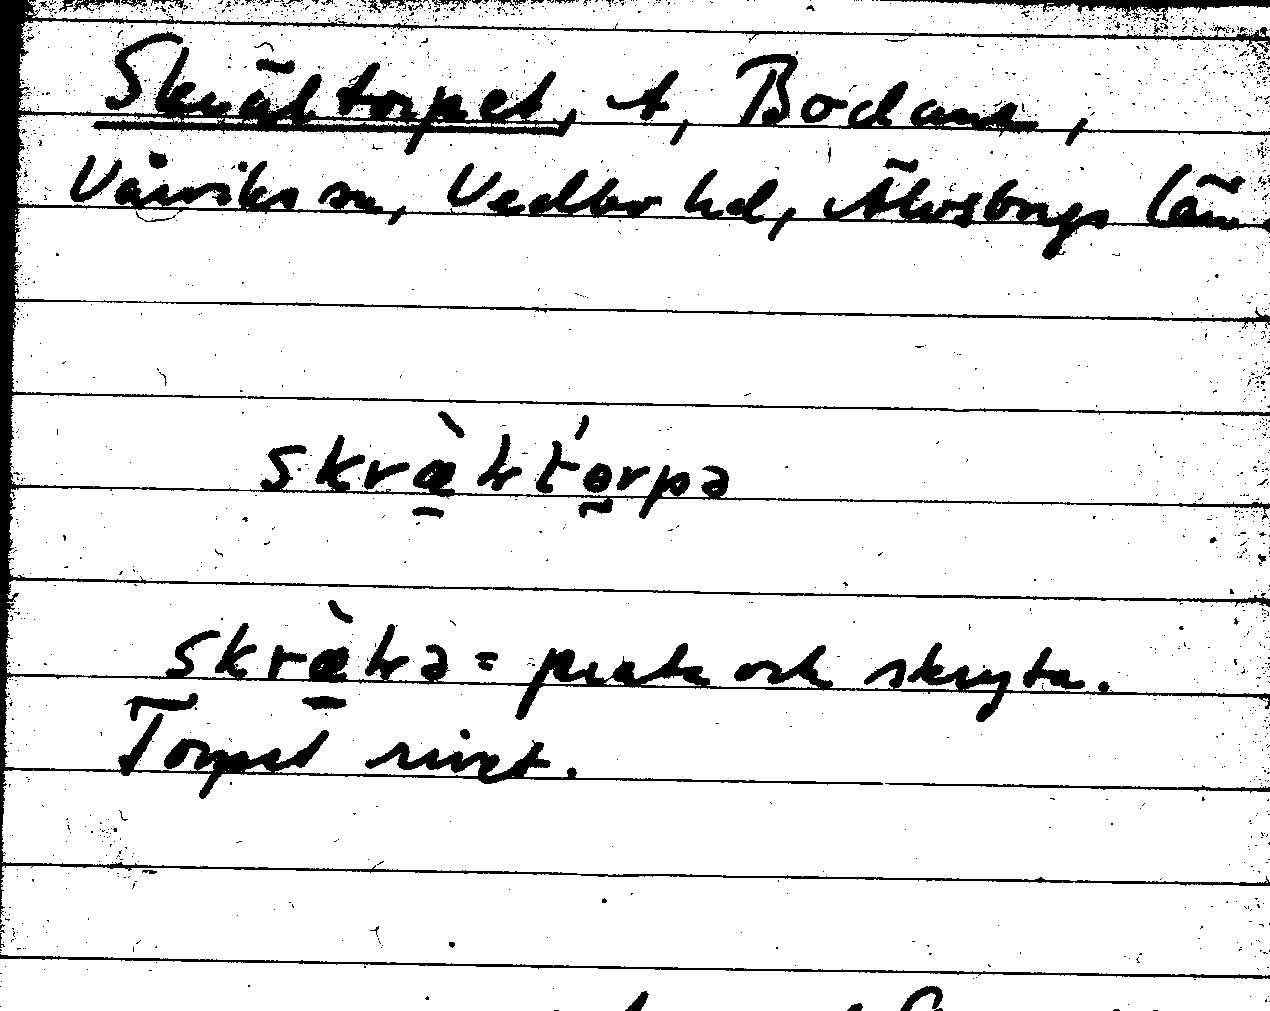 Skrältorpet, t, Bodane,
Vårviks sn, Vedbo hd, Älvsborgs län.
skræ̀ltʹɵrpə
skræ̀lə = prata och skryta.
Torpet rivet.